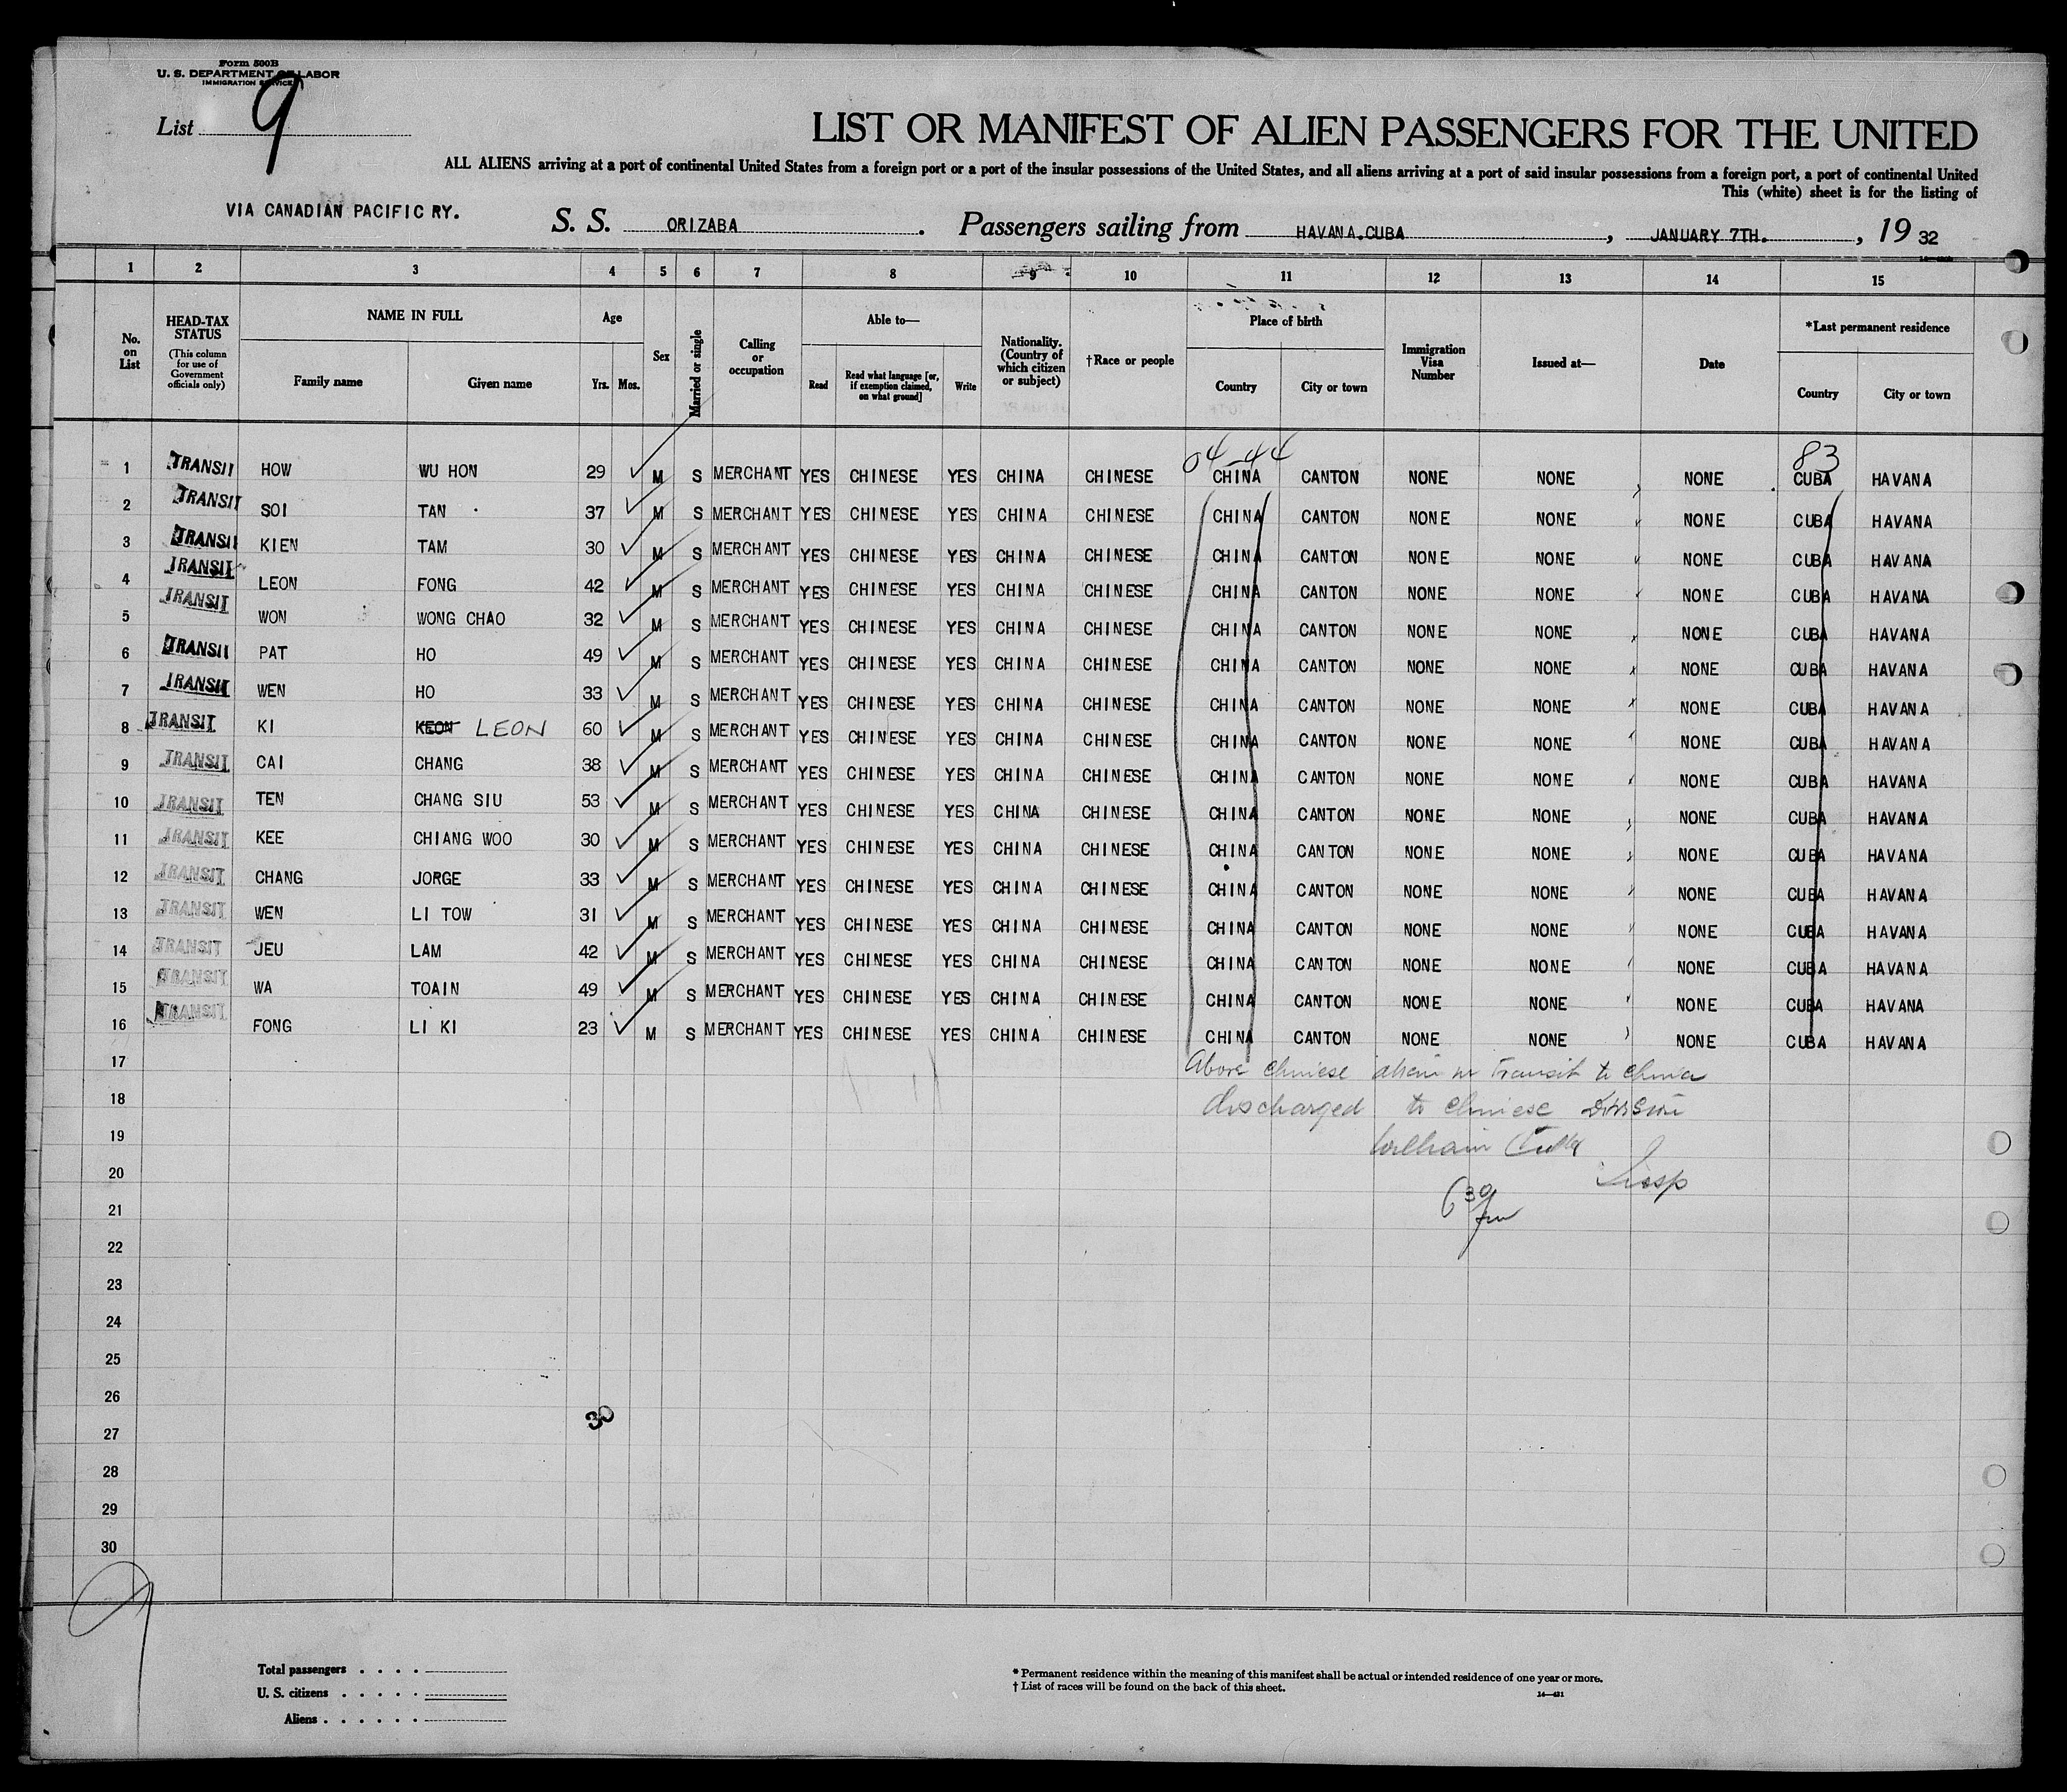 Form 500B
U. S. DEPARTMENT OF LABOR
IMMIGRATION SERVICE
List 9
LIST OR MANIFEST OF ALIEN PASSENGERS FOR THE UNITED
ALL ALIENS arriving at a port of continental United States from a foreign port or a port of the insular possessions of the United States, and all aliens arriving at a port of said insular possessions from a foreign port, a port of continental United
This (white) sheet is for the listing of
VIA CANADIAN PACIFIC RY. S. S. ORIZABA. Passengers sailing from HAVANA.CUBA, JANUARY 7TH., 19 32
1 2 3 4 5 6 7 8 9 10 11 12 13 14 15
No. on List HEAD-TAX STATUS (This column for use of Government officials only) NAME IN FULL Family name Given name Age Yrs. Mos. Sex Married or single Calling or occupation Able to— Read Read what language [or, if exemption claimed, on what ground] Write Nationality. (Country of which citizen or subject) †Race or people Place of birth Country City or town Immigration Visa Number Issued at— Date *Last permanent residence Country City or town
04-44 83
1 TRANSIT HOW WU HON 29 M S MERCHANT YES CHINESE YES CHINA CHINESE CHINA CANTON NONE NONE NONE CUBA HAVANA
2 TRANSIT SOI TAN 37 M S MERCHANT YES CHINESE YES CHINA CHINESE CHINA CANTON NONE NONE NONE CUBA HAVANA
3 TRANSIT KIEN TAM 30 M S MERCHANT YES CHINESE YES CHINA CHINESE CHINA CANTON NONE NONE NONE CUBA HAVANA
4 TRANSIT LEON FONG 42 M S MERCHANT YES CHINESE YES CHINA CHINESE CHINA CANTON NONE NONE NONE CUBA HAVANA
5 TRANSIT WON WONG CHAO 32 M S MERCHANT YES CHINESE YES CHINA CHINESE CHINA CANTON NONE NONE NONE CUBA HAVANA
6 TRANSIT PAT HO 49 M S MERCHANT YES CHINESE YES CHINA CHINESE CHINA CANTON NONE NONE NONE CUBA HAVANA
7 TRANSIT WEN HO 33 M S MERCHANT YES CHINESE YES CHINA CHINESE CHINA CANTON NONE NONE NONE CUBA HAVANA
8 TRANSIT KI KEON LEON 60 M S MERCHANT YES CHINESE YES CHINA CHINESE CHINA CANTON NONE NONE NONE CUBA HAVANA
9 TRANSIT CAI CHANG 38 M S MERCHANT YES CHINESE YES CHINA CHINESE CHINA CANTON NONE NONE NONE CUBA HAVANA
10 TRANSIT TEN CHANG SIU 53 M S MERCHANT YES CHINESE YES CHINA CHINESE CHINA CANTON NONE NONE NONE CUBA HAVANA
11 TRANSIT KEE CHIANG WOO 30 M S MERCHANT YES CHINESE YES CHINA CHINESE CHINA CANTON NONE NONE NONE CUBA HAVANA
12 TRANSIT CHANG JORGE 33 M S MERCHANT YES CHINESE YES CHINA CHINESE CHINA CANTON NONE NONE NONE CUBA HAVANA
13 TRANSIT WEN LI TOW 31 M S MERCHANT YES CHINESE YES CHINA CHINESE CHINA CANTON NONE NONE NONE CUBA HAVANA
14 TRANSIT JEU LAM 42 M S MERCHANT YES CHINESE YES CHINA CHINESE CHINA CANTON NONE NONE NONE CUBA HAVANA
15 TRANSIT WA TOAIN 49 M S MERCHANT YES CHINESE YES CHINA CHINESE CHINA CANTON NONE NONE NONE CUBA HAVANA
16 TRANSIT FONG LI KI 23 M S MERCHANT YES CHINESE YES CHINA CHINESE CHINA CANTON NONE NONE NONE CUBA HAVANA
17 Above Chinese alien in transit to China
18 discharged to Chinese Division
19 William
20 Insp
21 6 30 pm
22
23
24
25
26
30
27
28
29
30
9
Total passengers
U. S. citizens
Aliens
* Permanent residence within the meaning of this manifest shall be actual or intended residence of one year or more.
† List of races will be found on the back of this sheet.